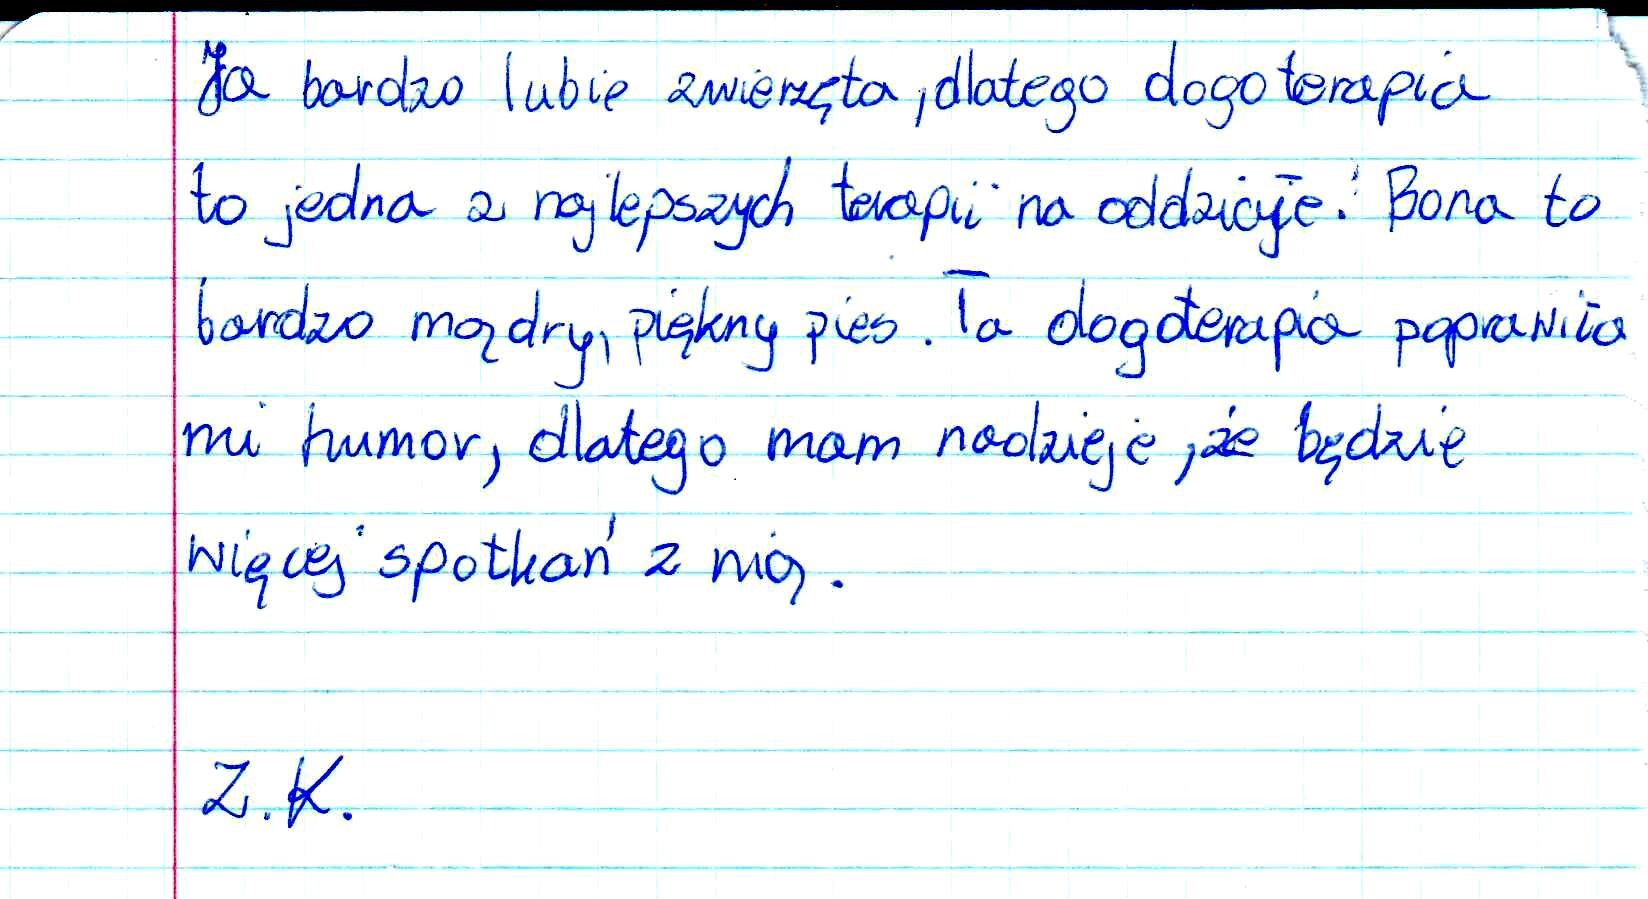 Ja bardzo lubie zwierzęta, dlatego dogoterapia
to jedna z najlepszych terapii na oddziale! Bona to
bardzo mądry, piękny pies. Ta dogoterapia poprawiła
mi humor, dlatego mam nadzieje, że będzie
więcej spotkań z nią.
Z.K.